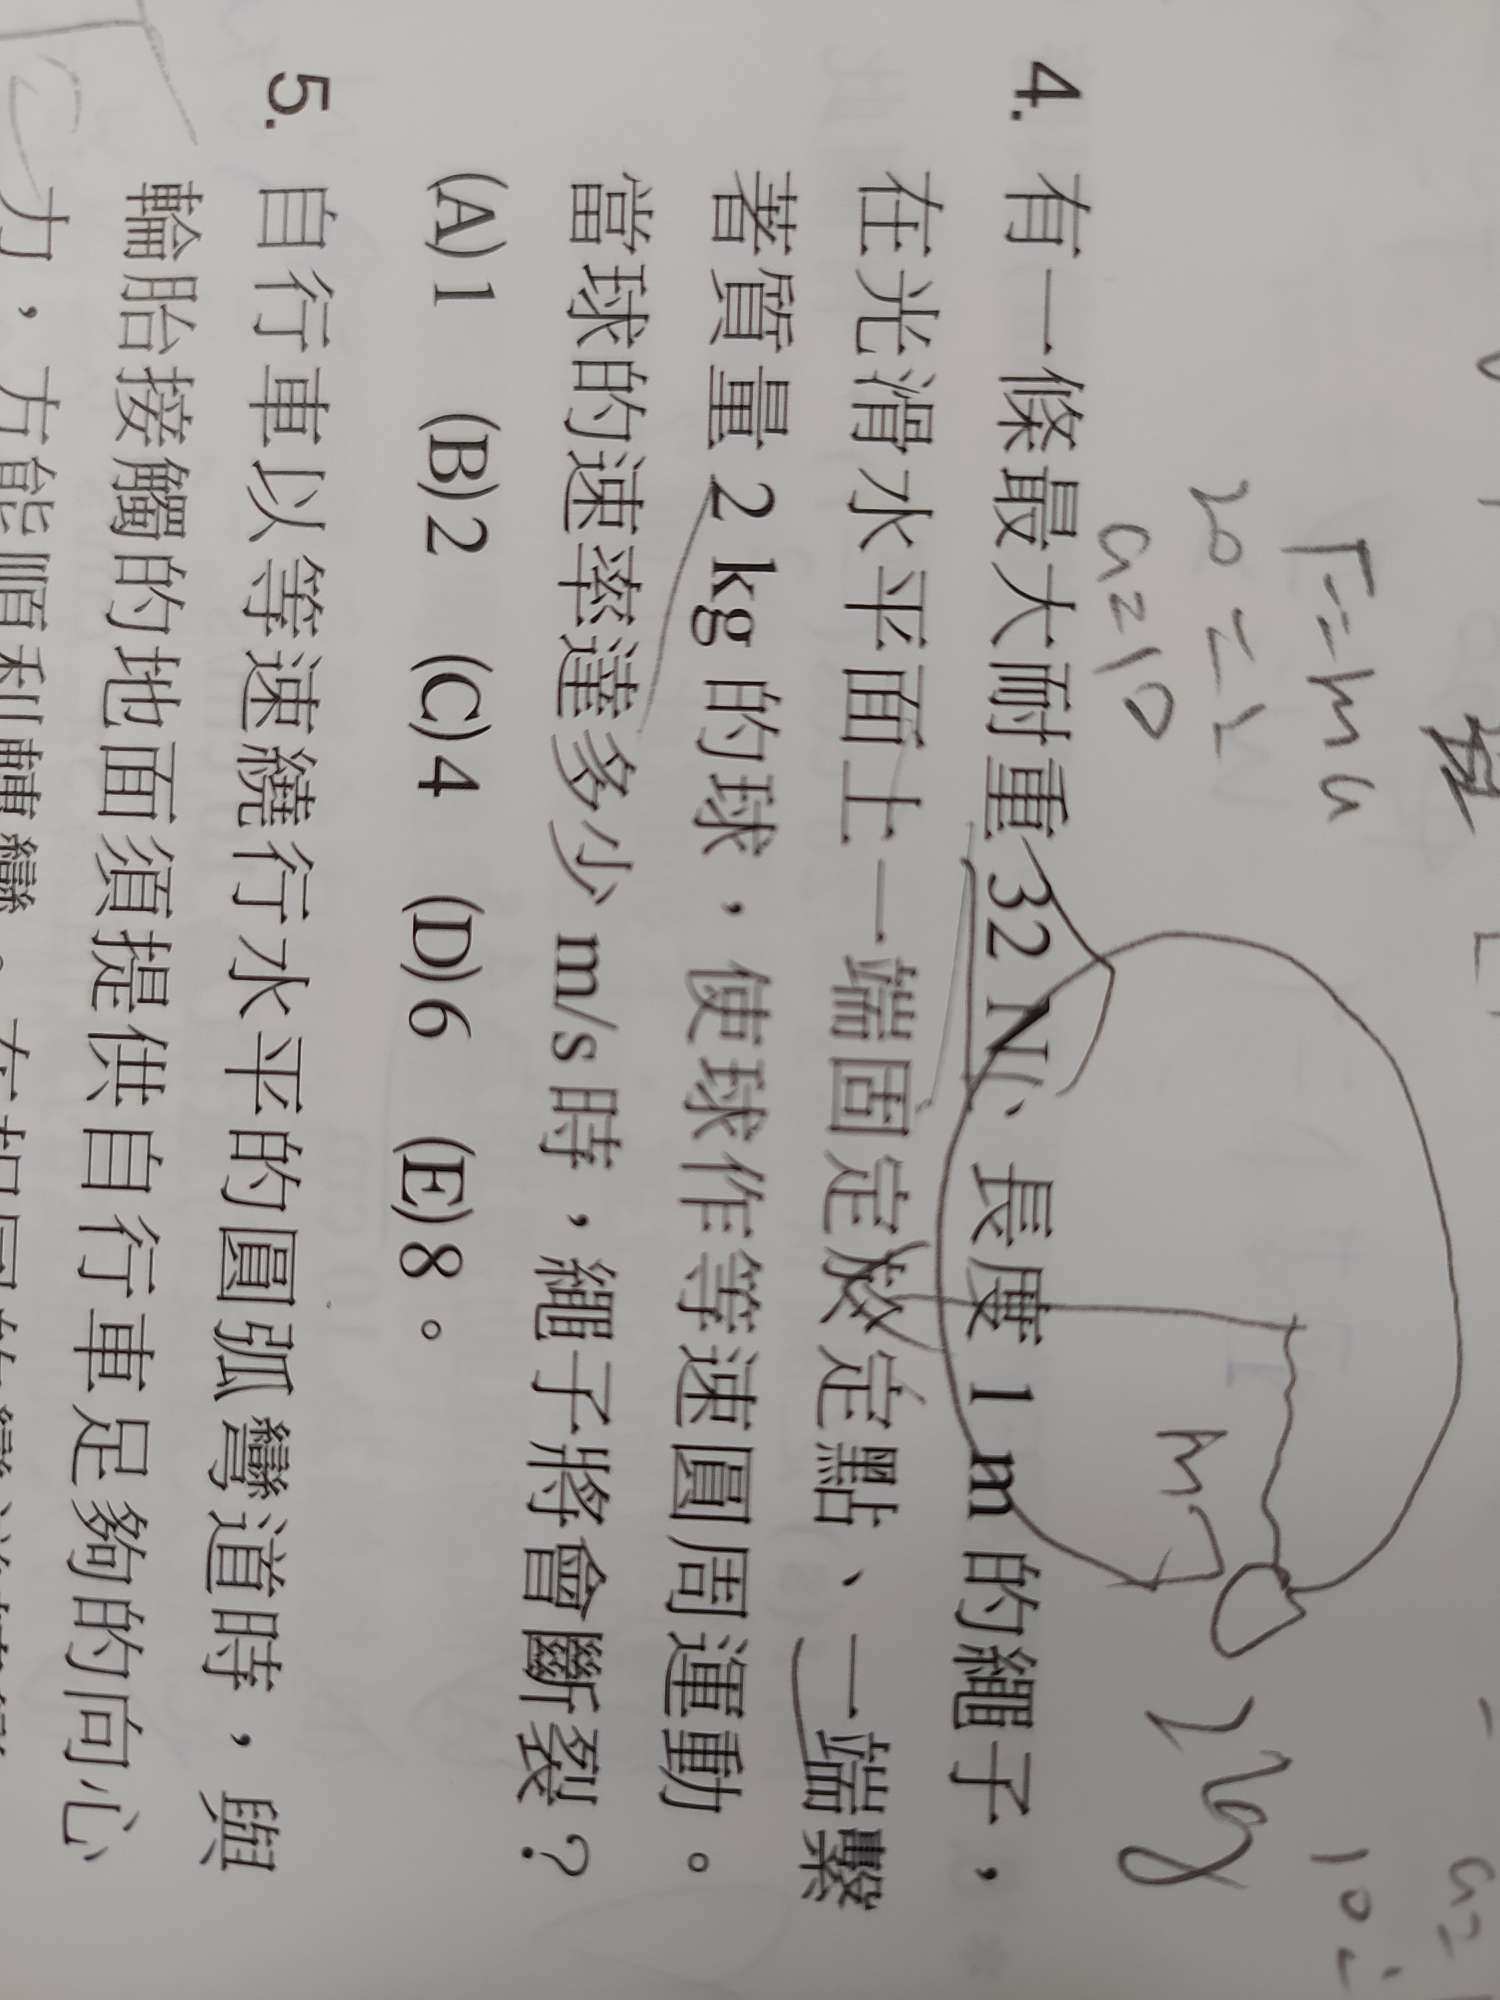 F=ma
20=2
a=10
2kg
M
4. 有一條最大耐重 32 N、長度 1 m 的繩子，
在光滑水平面上一端固定於定點、一端繫
著質量 2 kg 的球，使球作等速圓周運動。
當球的速率達多少 m/s 時，繩子將會斷裂？
(A)1 (B)2 (C)4 (D)6 (E)8。
5. 自行車以等速繞行水平的圓弧彎道時，與
輪胎接觸的地面須提供自行車足夠的向心
力，方能順利轉彎。在相同的